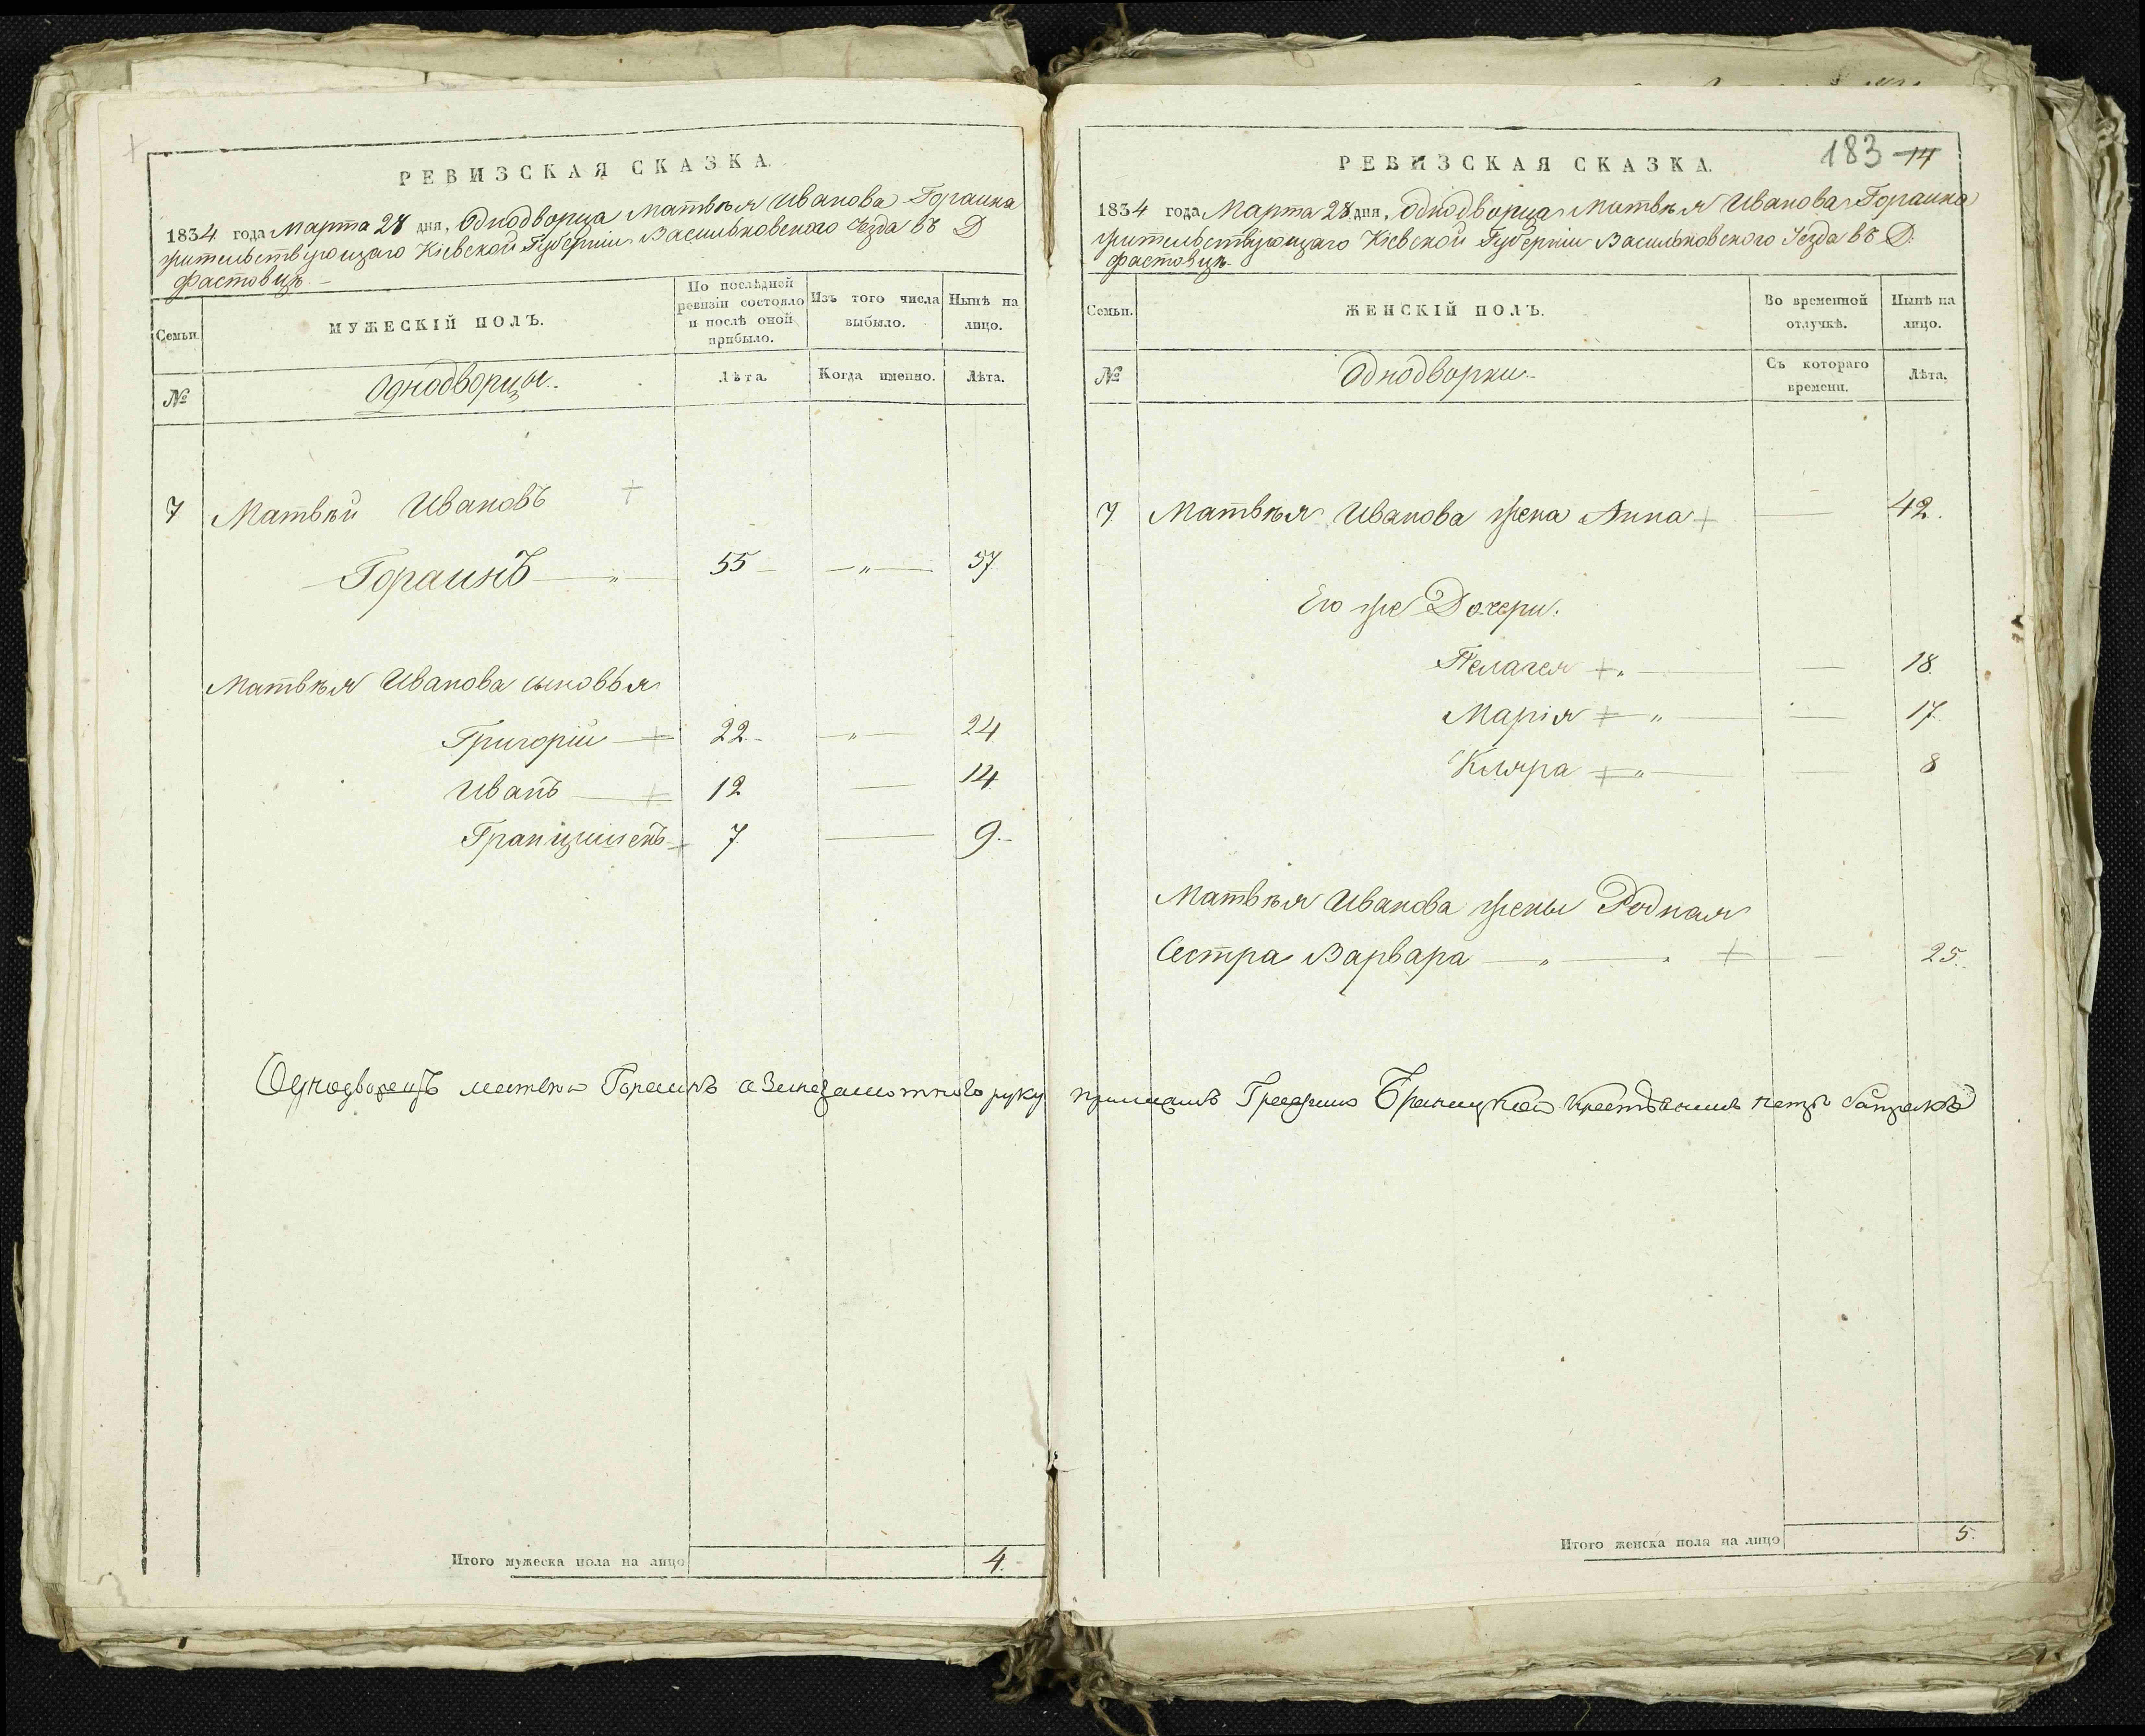 РЕВИЗСКАЯ СКАЗКА.
1834 года Марта 28 дня, Однодворца Матвѣя Иванова Гораина
жительствующаго Кіевской Губерніи Васильковского Уезда въ Д
Фастовцѣ
Семьи.
МУЖЕСКІЙ ПОЛЪ.
По послѣдней ревизіи состояло и послѣ оной прибыло.
Изъ того числа выбыло.
Нынѣ на лицо.
№
Однодворцы.
Лѣта.
Когда именно.
Лѣта.
7 Матвѣй Ивановъ
Гораинъ 55 57
Матвѣя Иванова сыновья
Григорій 22 24
Иванъ 12 14
Францишекъ 7 9
Однодворецъ Гораинъ руку
Итого мужеска пола на лицо 4.
183 14
РЕВИЗСКАЯ СКАЗКА.
1834 года Марта 28 дня, Однодворца Матвѣя Иванова Гораина
жительствующаго Кіевской Губерніи Васильковского Уезда въ Д.
Фастовцѣ
Семьи.
ЖЕНСКІЙ ПОЛЪ.
Во временной отлучкѣ.
Нынѣ на лицо.
№
Однодворки
Съ котораго времени.
Лѣта.
7 Матвѣя Иванова жена Анна 42.
Его же Дочери.
Пелагея 18.
Марія 17.
Кляра 8
Матвѣя Иванова жены Родная
Сестра Варвара 25.
Браницкой
Итого женска пола на лицо 5.